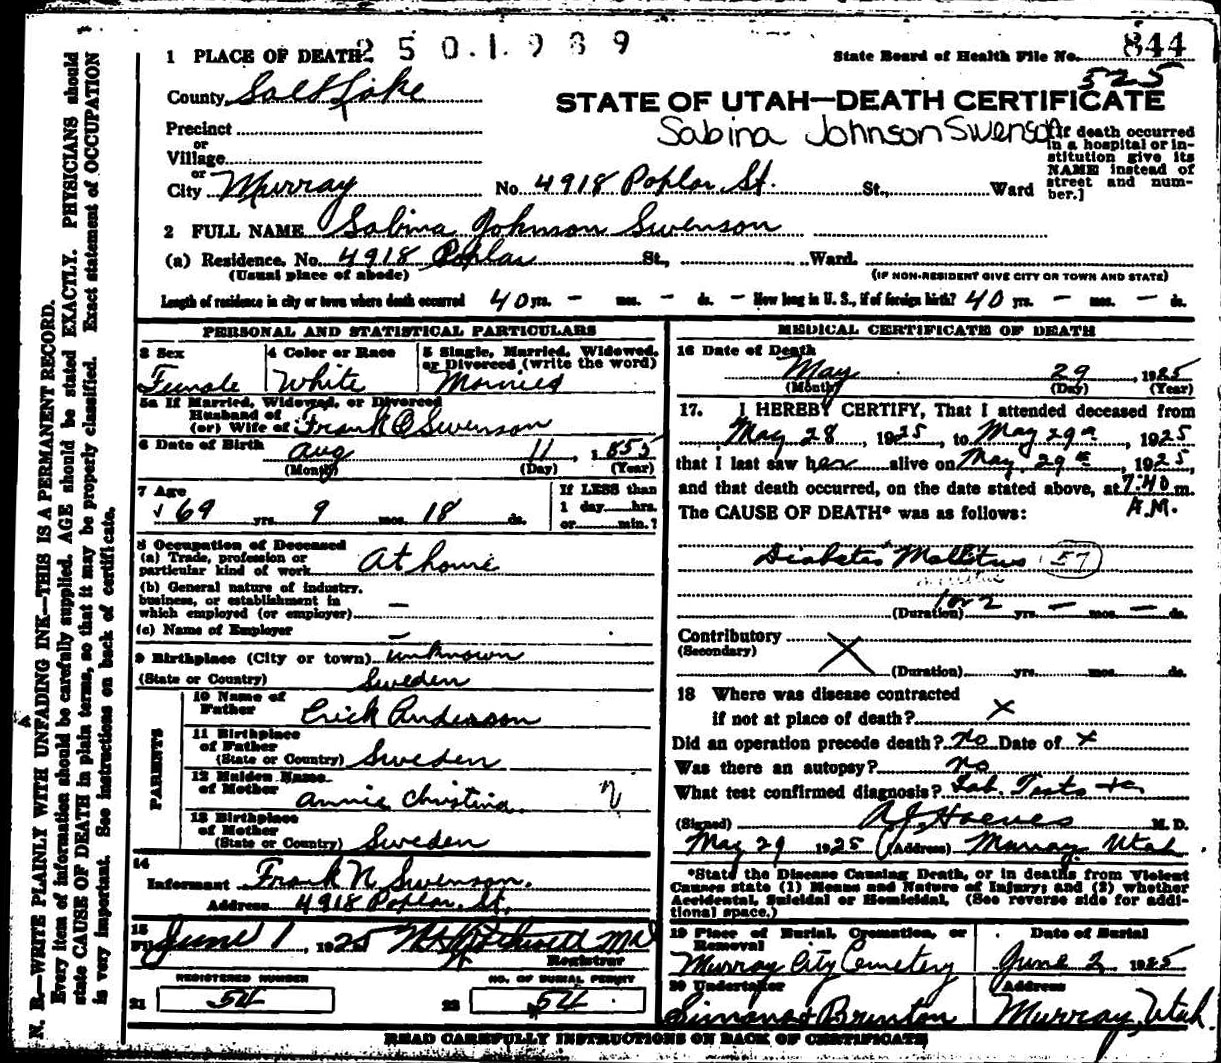 1 PLACE OF DEATH 2 5 0 . 1 . 9 8 9
State Board of Health File No. 844
525
County Salt Lake
STATE OF UTAH—DEATH CERTIFICATE
Sabina Johnson Swenson
Precinct
or
Village
or
City Murray No. 4918 Poplar St. St., Ward
[If death occurred
in a hospital or in-
stitution give its
NAME instead of
street and num-
ber.]
2 FULL NAME Sabina Johnson Swenson
(a) Residence. No. 4918 Poplar St., Ward.
(Usual place of abode) (IF NON-RESIDENT GIVE CITY OR TOWN AND STATE)
Length of residence in city or town where death occurred 40 yrs. - mos. - ds. - How long in U. S., if of foreign birth? 40 yrs. - mos. - ds.
PERSONAL AND STATISTICAL PARTICULARS
3 Sex
Female
4 Color or Race
White
5 Single, Married, Widowed,
or Divorced (write the word)
Married
5a If Married, Widowed, or Divorced
Husband of
(or) Wife of Frank O Swenson
6 Date of Birth Aug 11, 1855
(Month) (Day) (Year)
7 Age
69 yrs. 9 mos. 18 ds.
If LESS than
1 day hrs.
or min.?
8 Occupation of Deceased
(a) Trade, profession or
particular kind of work At home
(b) General nature of industry,
business, or establishment in
which employed (or employer) —
(c) Name of Employer —
9 Birthplace (City or town) unknown
(State or Country) Sweden
PARENTS
10 Name of
Father Erick Anderson
11 Birthplace
of Father
(State or Country) Sweden
12 Maiden Name
of Mother Annie Christina
13 Birthplace
of Mother
(State or Country) Sweden
14
Informant Frank N Swenson.
Address 4918 Poplar St.
15
Filed June 1, 1925 M.D.
Registrar
REGISTERED NUMBER
21 54
NO. OF BURIAL PERMIT
22 54
MEDICAL CERTIFICATE OF DEATH
16 Date of Death
May 29, 1925
(Month) (Day) (Year)
17. I HEREBY CERTIFY, That I attended deceased from
May 28, 1925, to May 29th, 1925
that I last saw her alive on May 29th, 1925,
and that death occurred, on the date stated above, at 7:40 m.
A.M.
The CAUSE OF DEATH* was as follows:
Diabetes Mellitus 57
(Duration) 1 or 2 yrs. — mos. — ds.
Contributory X
(Secondary)
(Duration) yrs. mos. ds.
18 Where was disease contracted
if not at place of death? X
Did an operation precede death? no Date of X
Was there an autopsy? no
What test confirmed diagnosis? Lab. Tests
(Signed) M. D.
May 29 1925 (Address) Murray Utah
*State the Disease Causing Death, or in deaths from Violent
Causes state (1) Means and Nature of Injury; and (2) whether
Accidental, Suicidal or Homicidal. (See reverse side for addi-
tional space.)
19 Place of Burial, Cremation, or
Removal
Murray City Cemetery
Date of Burial
June 2 1925
20 Undertaker
Simons & Brinton
Address
Murray, Utah.
READ CAREFULLY INSTRUCTIONS ON BACK OF CERTIFICATE
N. B.—WRITE PLAINLY WITH UNFADING INK—THIS IS A PERMANENT RECORD.
Every item of information should be carefully supplied. AGE should be stated EXACTLY. PHYSICIANS should
state CAUSE OF DEATH in plain terms, so that it may be properly classified. Exact statement of OCCUPATION
is very important. See instructions on back of certificate.